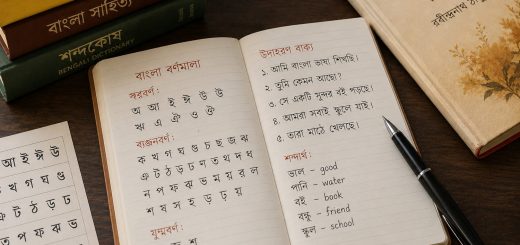 বাংলা সাহিত্য
শব্দকোষ
BENGALI DICTIONARY
রবীন্দ্রনাথ
আ ই ঈ উ
খ গ ঘ ঙ
ট ঠ ড ঢ
ফ ব ভ ম
বাংলা বর্ণমালা
স্বরবর্ণ:
অ আ ই ঈ উ ঊ
ঋ এ ঐ ও ঔ
ব্যঞ্জনবর্ণ:
ক খ গ ঘ ঙ চ ছ জ ঝ
ঞ ট ঠ ড ঢ ণ ত থ দ ধ
ন প ফ ব ভ ম য র ল
শ ষ স হ ড় ঢ় য়
যুগ্মবর্ণ:
উদাহরণ বাক্য
১. আমি বাংলা ভাষা শিখছি।
২. তুমি কেমন আছো?
৩. সে একটি সুন্দর বই পড়ছে।
৪. আমরা সবাই স্কুলে যাই।
৫. তারা মাঠে খেলছে।
শব্দার্থ:
ভাল – good
পানি – water
বই – book
বন্ধু – friend
স্কুল – school